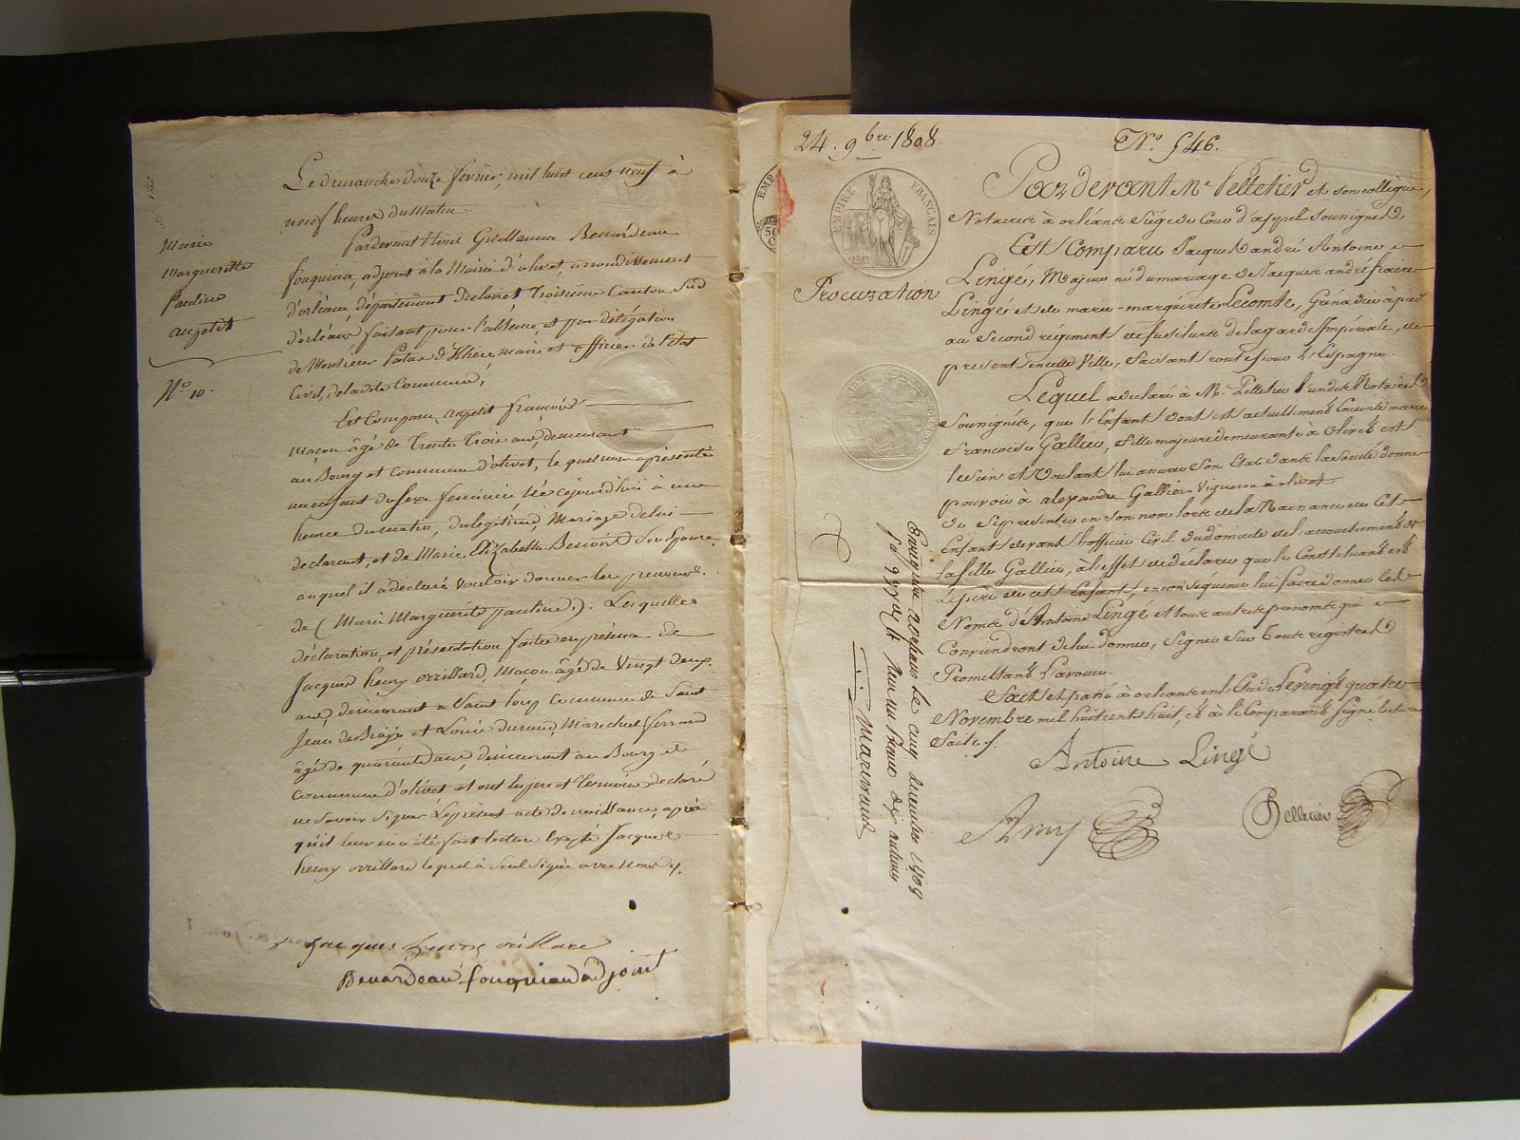 Le dimanche douze fevrier, mil huit cent neuf à
neuf heures du Matin
Pardevant Nous Guillaume Beuardeau
fouqueau, adjoint à la Mairie d'olivet, arrondissement
d'orléans, département Du loiret Troisième Canton Sud
d'orléans faisant pour l'absence, et par délégation
de Monsieur maire et officier de l'état
Civil, de ladite Commune,
Est Comparu, anpetit francois
Maçon âgé de Trente Trois ans, demeurant
au Bourg et Commune d'olivet, le quel nous a présenté
un enfant du Sexe feminin Née cejourd'hui à une
heure du matin, du légitime Mariage de lui
declarant, et de Marie Elizabeth Benoist Son Epouse,
auquel il a déclaré Vouloir donner les prenoms
de (Marie Marguerite pauline). Lesquelles
déclaration, et présentation faites en présence de
Jacques henry orrillard, Maçon âgé de Vingt deux
ans, demeurant a Saint loup Commune de Saint
Jean de Braye et Louis durand, Marechal ferrand
âgé de quarante deux, demeurant au Bourg et
Commune d'olivet et ont les pere et temoins declaré
ne Savoir Signer Le présent acte de naissance, après
qu'il leur en a été fait lecture Excepté Jacques
henry orrillard lequel à Seul Signé avec Nous
Marie
Marguerite
Pauline
anpetit
N.o 10.
Jacques henry orillard
Beuardeau fouqueau adjoint
24. 9bre 1808
N.o 546.
EMPIRE FRANÇAIS
Procuration
Pardevant Me. Pelletier et son collegue,
Notaires à orléans Siège de Cour d'appel Soussignés,
Est Comparu Jacques andré Antoine
Lingé, Majeur né du mariage de Jacques andré
Lingé et de marie-marguerite Lecomte, Grenadier à pied
au Second régiment de fusiliers de la garde Impériale, de
present en cette Ville, passant route pour l'Espagne.
Lequel a declaré à Me. Pelletier l'un des Notaires
Soussignés, que l'Enfant dont est actuellement Enceinte marie
francoise Gallier, fille majeure demeurante à Olivet est
le sien et Voulant lui assurer Son Etat dans la Société donne
pouvoir à alexandre Gallier Vigneron à olivet
de Représenter en Son nom lors de la Naissance du dit
Enfant devant l'officier Civil du domicile de l'accouchement de
la fille Gallier, à l'effet de déclarer que le Constituant est
le pere du dit Enfant, en conséquence lui faire donner le
Nom d'Antoine Lingé et tout autre prenom qui
Conviendront de lui donner, Signer Sur tout registre
Promettant l'avouer
Fait et passé à orléans en l'Etude Le vingt quatre
Novembre mil huit cent huit, et à le Comparant Signé lecture
faite.
Antoine Lingé
Pelletier
Enregistré à orleans le cinq decembre 1808